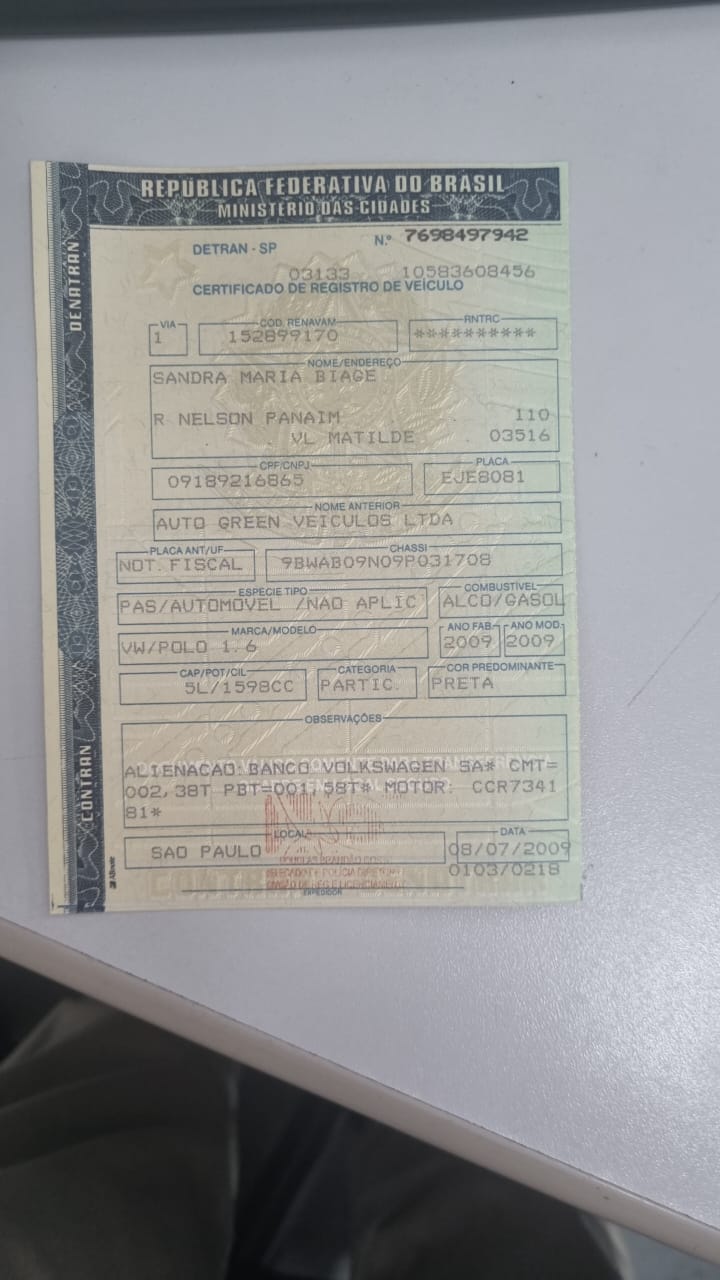 REPÚBLICA FEDERATIVA DO BRASIL
MINISTÉRIO DAS CIDADES
DENATRAN
CONTRAN
DETRAN - SP
N.º 7698497942
03133 10583608456
CERTIFICADO DE REGISTRO DE VEÍCULO
VIA
1
CÓD. RENAVAM
152899170
RNTRC
**********
NOME/ENDEREÇO
SANDRA MARIA BIAGE
R NELSON PANAIM 110
VL MATILDE 03516
CPF/CNPJ
09189216865
PLACA
EJE8081
NOME ANTERIOR
AUTO GREEN VEICULOS LTDA
PLACA ANT/UF
NOT. FISCAL
CHASSI
9BWAB09N09P031708
ESPÉCIE TIPO
PAS/AUTOMOVEL /NAO APLIC
COMBUSTÍVEL
ALCO/GASOL
MARCA/MODELO
VW/POLO 1.6
ANO FAB.
2009
ANO MOD.
2009
CAP/POT/CIL
5L/1598CC
CATEGORIA
PARTIC.
COR PREDOMINANTE
PRETA
OBSERVAÇÕES
ALIENACAO:BANCO VOLKSWAGEN SA* CMT=
002,38T PBT=001,58T* MOTOR: CCR7341
81*
LOCAL
SAO PAULO
DATA
08/07/2009
0103/0218
EXPEDIDOR